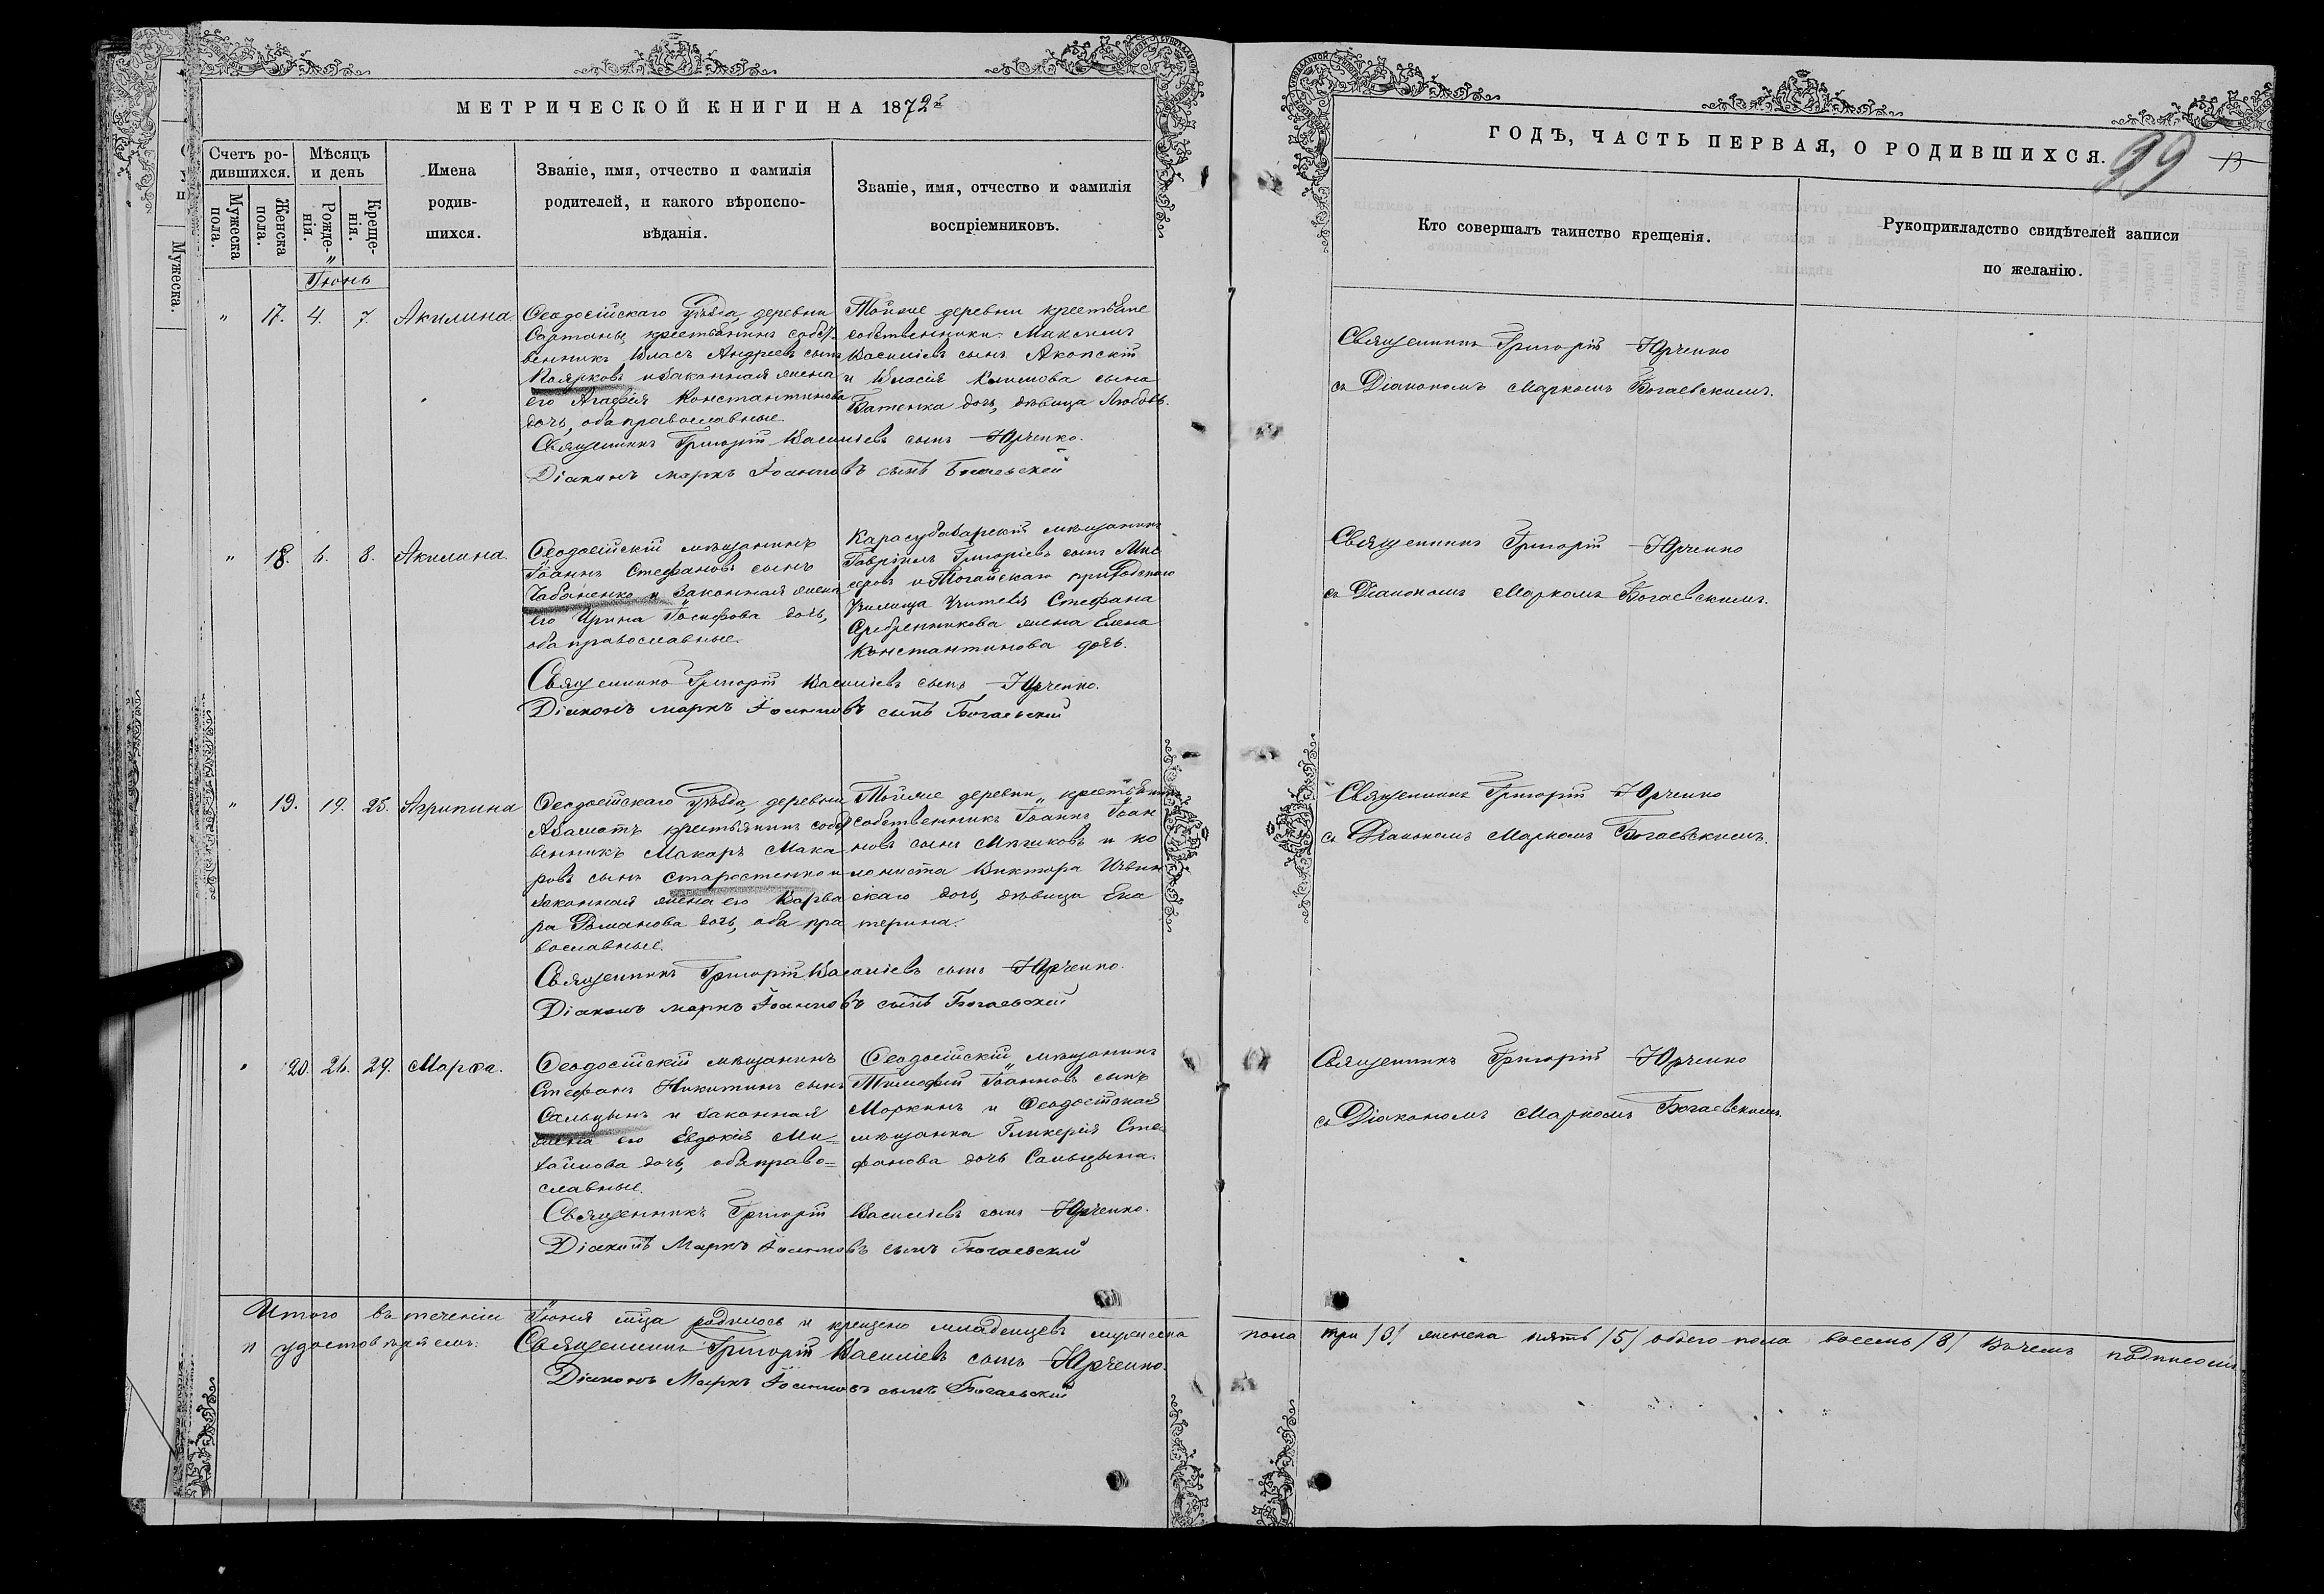 МЕТРИЧЕСКОЙ КНИГИ НА 1872й
Счетъ ро-
дившихся.
Мѣсяцъ
и день
Мужеска
пола.
Женска
пола.
Рожде-
нія.
Креще-
нія.
Имена
родив-
шихся.
Званіе, имя, отчество и фамилія
родителей, и какого вѣроиспо-
вѣданія.
Званіе, имя, отчество и фамилія
воспріемниковъ.
Мужеска.
Іюнь
" 17. 4. 7. Акилина.
Ѳеодосійскаго Уѣзда, деревни
Сартаны, крестьянинъ собст-
венникъ Власъ Андреевъ сынъ
Коярковъ и законная жена
его Агафія Константинова
дочь, оба православные.
Тойже деревни крестьяне
собственники: Максимъ
Василіевъ сынъ
и Власія Климова сына
дочь, дѣвица Любовь.
Священникъ Григорій Василіевъ сынъ Юрченко.
Діаконъ Маркъ Іоанновъ сынъ Богаевскій
" 18. 6. 8. Акилина.
Ѳеодосійскій мѣщанинъ
Іоаннъ Стефановъ сынъ
Чабаненко и законная жена
его Ирина Іосифова дочь,
оба православные.
Карасубазарскій мѣщанинъ
Гавріилъ Григоріевъ сынъ
и Ногайскаго приходскаго
Училища Учителя Стефана
Сребренникова жена Елена
Константинова дочь.
Священникъ Григорій Василіевъ сынъ Юрченко.
Діаконъ Маркъ Іоанновъ сынъ Богаевскій
" 19. 19. 25. Агрипина
Ѳеодосійскаго Уѣзда, деревни
крестьянинъ собст
венникъ Макаръ Мака
ровъ сынъ Старостенко и
законная жена его Варва
ра Романова дочь, оба пра
вославные.
Тойже деревни, крестьянинъ
собственникъ Іоаннъ Іоан
новъ сынъ и ко
лониста Виктора
скаго дочь, дѣвица Ека
терина.
Священникъ Григорій Василіевъ сынъ Юрченко.
Діаконъ Маркъ Іоанновъ сынъ Богаевскій
" 20. 26. 29. Марѳа.
Ѳеодосійскій мѣщанинъ
Стефанъ Никитинъ сынъ
Сальцынъ и законная
жена его Евдокія Ми-
хаилова дочь, оба право-
славные.
Ѳеодосійскій мѣщанинъ
Тимофей Іоанновъ сынъ
Моркинъ и Ѳеодосійская
мѣщанка Гликерія Сте
фанова дочь Сальцына.
Священникъ Григорій Василіевъ сынъ Юрченко.
Діаконъ Маркъ Іоанновъ сынъ Богаевскій
Итого въ теченіи Іюня м-ца родилось и крещено младенцевъ мужеска
и удостовѣряемъ: Священникъ Григорій Василіевъ сынъ Юрченко.
Діаконъ Маркъ Іоанновъ сынъ Богаевскій
ГОДЪ, ЧАСТЬ ПЕРВАЯ, О РОДИВШИХСЯ.
99 13
Кто совершалъ таинство крещенія.
Рукоприкладство свидѣтелей записи
по желанію.
Священникъ Григорій Юрченко
съ Діакономъ Маркомъ Богаевскимъ.
Священникъ Григорій Юрченко
съ Діакономъ Маркомъ Богаевскимъ.
Священникъ Григорій Юрченко
съ Діакономъ Маркомъ Богаевскимъ.
Священникъ Григорій Юрченко
съ Діакономъ Маркомъ Богаевскимъ.
пола три /3/ женска пять /5/ обоего пола восемь /8/ Въ чемъ подписомъ